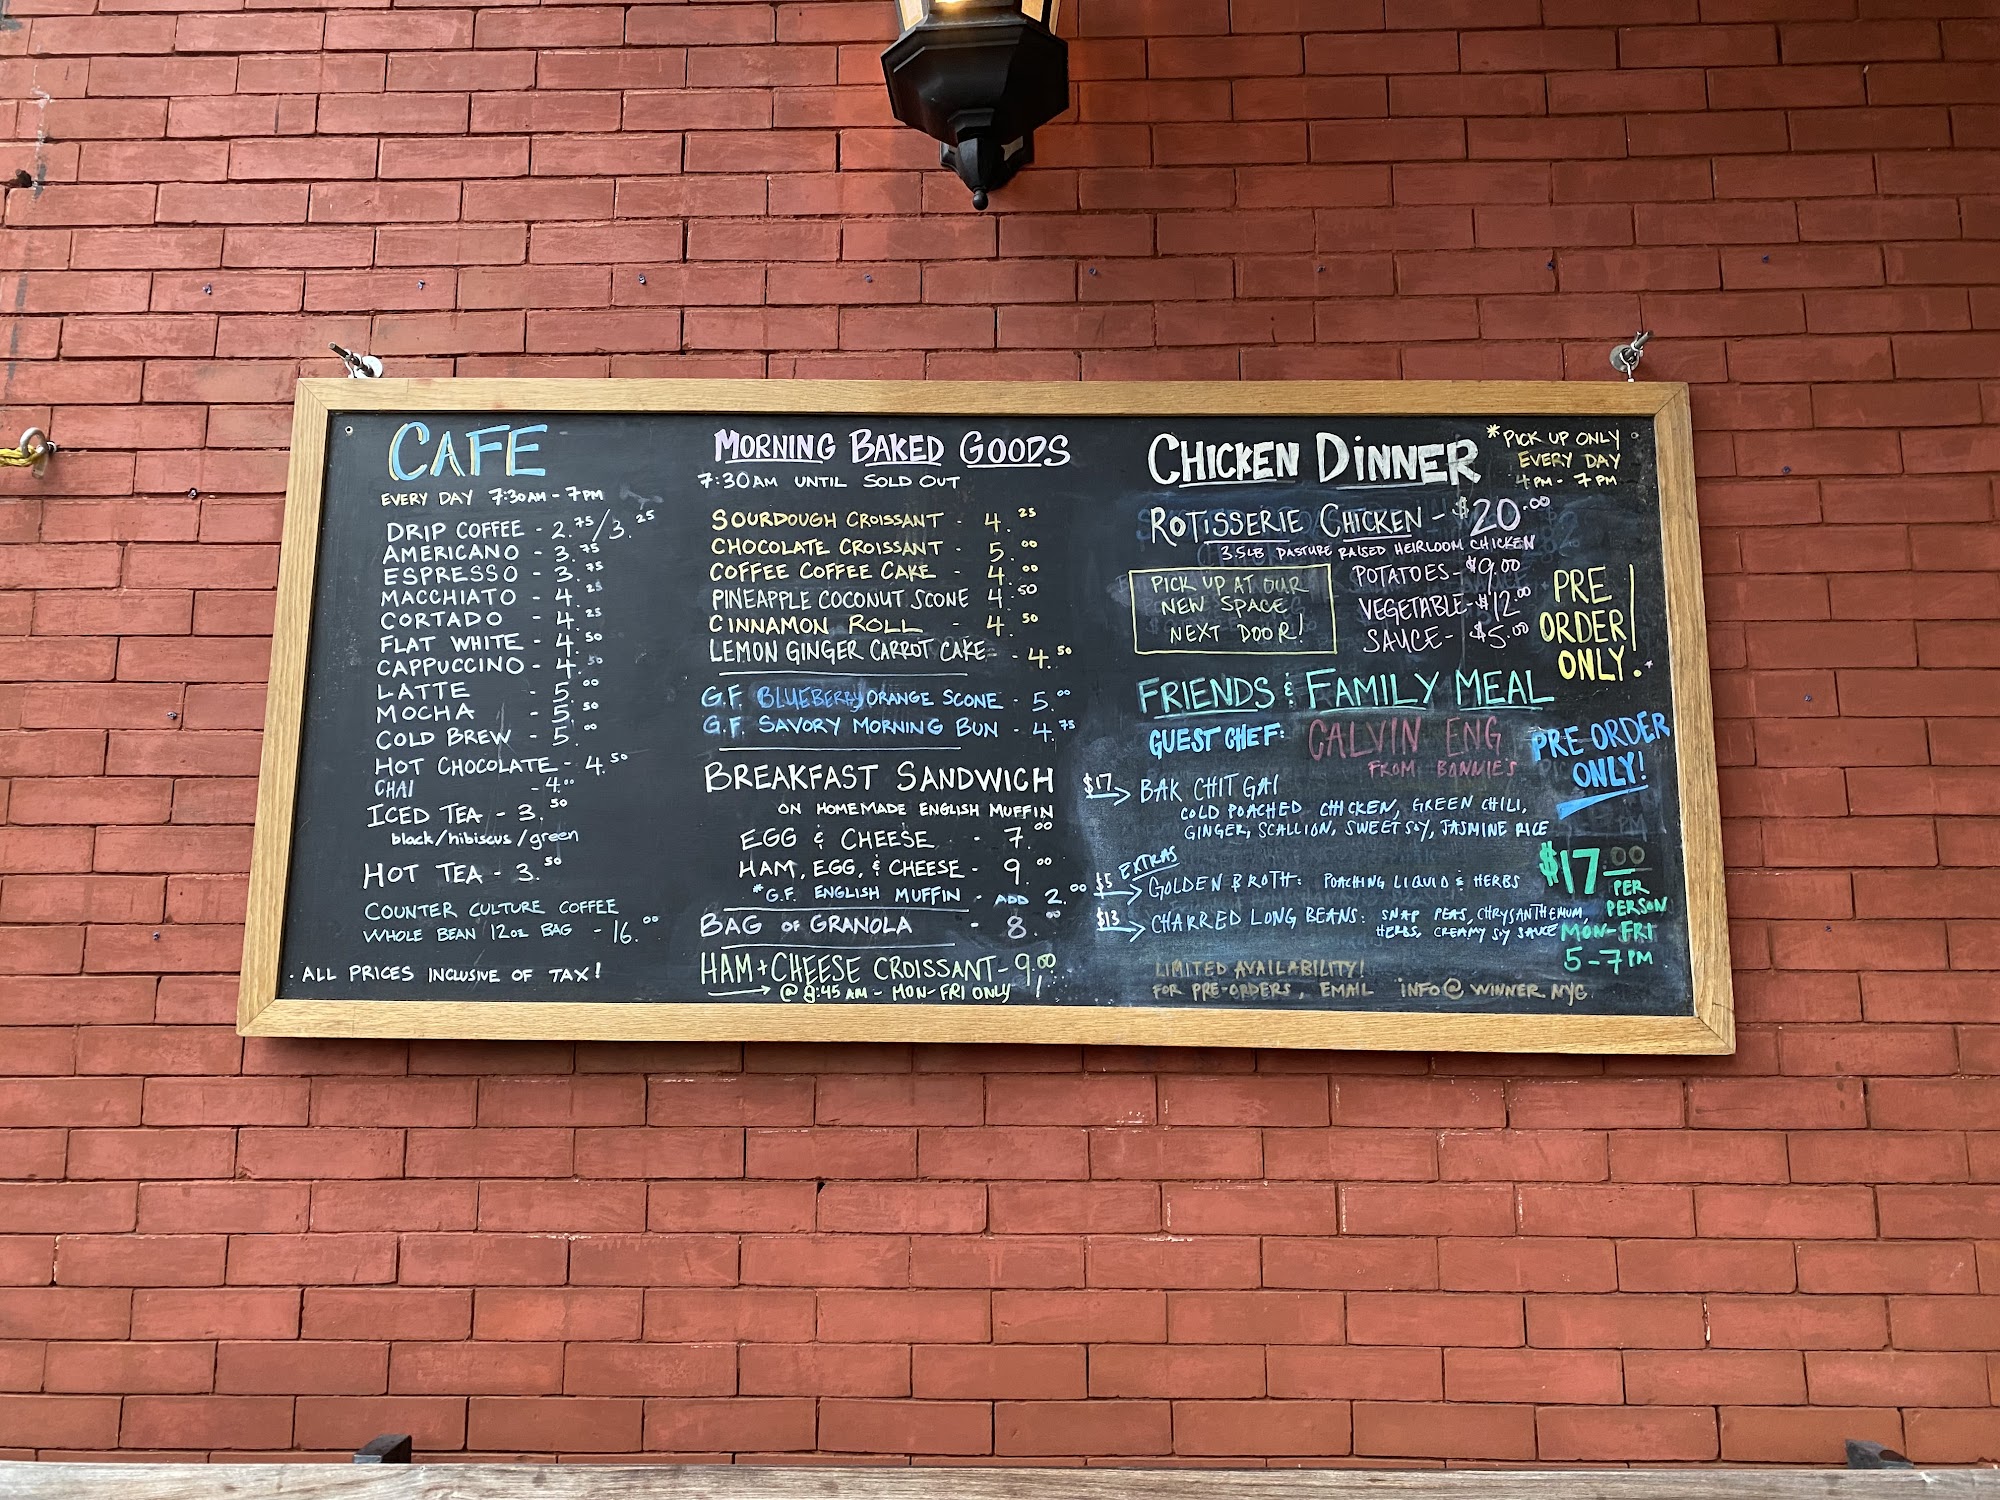 CAFE
EVERY DAY 7:30AM - 7PM
DRIP COFFEE - 2.75/3.25
AMERICANO - 3.75
ESPRESSO - 3.75
MACCHIATO - 4.25
CORTADO - 4.25
FLAT WHITE - 4.50
CAPPUCCINO - 4.50
LATTE - 5.00
MOCHA - 5.50
COLD BREW - 5.00
HOT CHOCOLATE - 4.50
CHAI - 4.00
ICED TEA - 3.50
black/hibiscus/green
HOT TEA - 3.50
COUNTER CULTURE COFFEE
WHOLE BEAN 12oz BAG - 16.00
. ALL PRICES INCLUSIVE OF TAX!
MORNING BAKED GOODS
7:30AM UNTIL SOLD OUT
SOURDOUGH CROISSANT - 4.25
CHOCOLATE CROISSANT - 5.00
COFFEE COFFEE CAKE - 4.00
PINEAPPLE COCONUT SCONE 4.50
CINNAMON ROLL - 4.50
LEMON GINGER CARROT CAKE - 4.50
G.F. BLUEBERRY ORANGE SCONE - 5.00
G.F. SAVORY MORNING BUN - 4.75
BREAKFAST SANDWICH
ON HOMEMADE ENGLISH MUFFIN
EGG & CHEESE - 7.00
HAM, EGG, & CHEESE - 9.00
*G.F. ENGLISH MUFFIN - ADD 2.00
BAG OF GRANOLA - 8.00
HAM + CHEESE CROISSANT - 9.00
@ 8:45 AM - MON-FRI ONLY!
CHICKEN DINNER
*PICK UP ONLY
EVERY DAY
4PM - 7PM
ROTISSERIE CHICKEN - $20.00
3.5LB PASTURE RAISED HEIRLOOM CHICKEN
PICK UP AT OUR
NEW SPACE
NEXT DOOR!
POTATOES - $9.00
VEGETABLE - $12.00
SAUCE - $5.00
PRE
ORDER
ONLY!
FRIENDS & FAMILY MEAL
GUEST CHEF: CALVIN ENG
FROM BONNIE'S
PRE ORDER
ONLY!
$17 BAK CHIT GAI
COLD POACHED CHICKEN, GREEN CHILI,
GINGER, SCALLION, SWEET SOY, JASMINE RICE
EXTRAS
$5 GOLDEN BROTH: POACHING LIQUID & HERBS
$13 CHARRED LONG BEANS: SNAP PEAS, CHRYSANTHEMUM,
HERBS, CREAMY SOY SAUCE
$17.00
PER
PERSON
MON-FRI
5-7PM
LIMITED AVAILABILITY!
FOR PRE-ORDERS, EMAIL INFO@WINNER.NYC